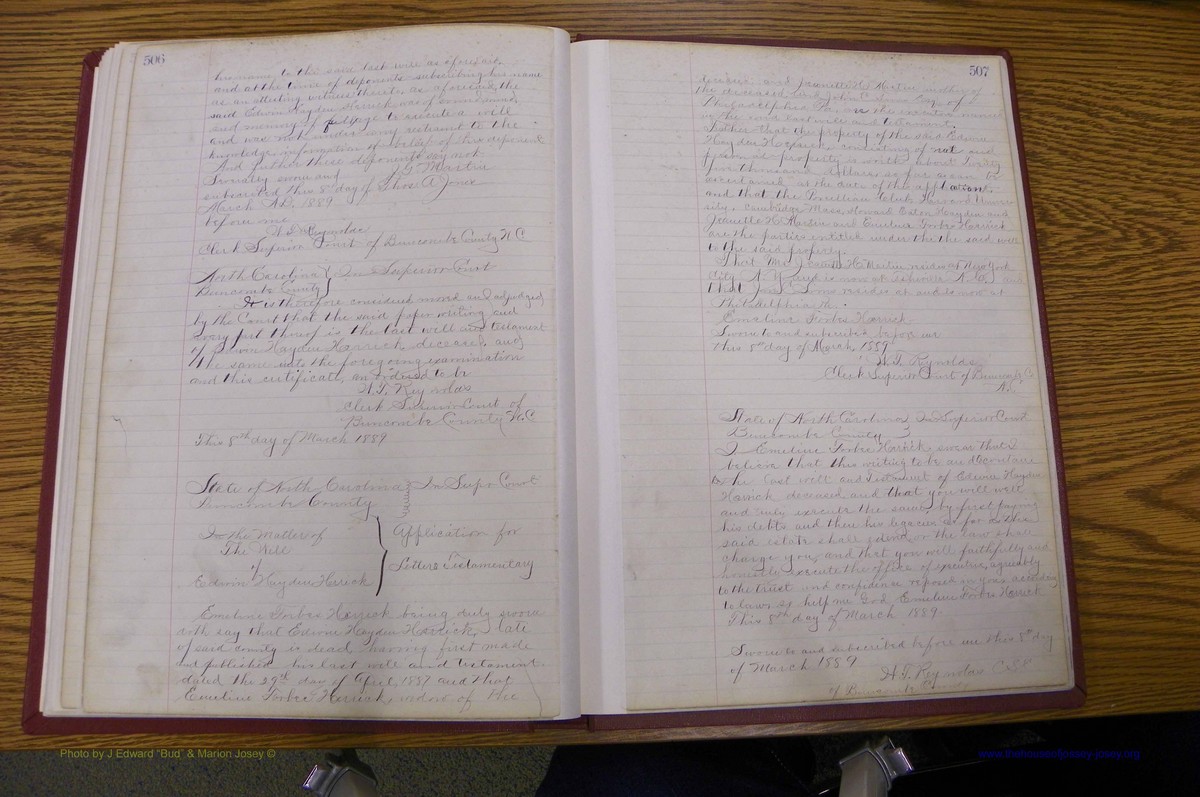 506
his name to the same last will as aforesaid
and at the time of deponents subscribing his name
as an attesting witness thereto, as aforesaid the
said Edwin Hayden Herrick was of sound mind
and memory, of full age to execute a will
and was not under any restraint to the
knowledge, information or belief of this deponent
And further these deponents say not
Severally sworn and
subscribed this 8th day of Thos A. Jones
March A.D. 1889
before me
Clerk Superior Court of Buncombe County N.C
North Carolina } In Superior Court
Buncombe County
It is therefore considered and adjudged
by the Court that the said paper writing and
every part thereof is the last will and testament
of Edwin Hayden Herrick, deceased and
the same with the foregoing examination
and this certificate, are ordered to be
H.T. Reynolds
Clerk Superior Court of
Buncombe County N.C
This 8th day of March 1889
State of North Carolina } In Supr Court
Buncombe County
In the Matter of
The Will
of
Edwin Hayden Herrick
} Application for
Letters Testamentary
Emeline Forbes Herrick being duly sworn
doth say that Edwin Hayden Herrick, late
of said county is dead, having first made
and published his last will and testament
dated the 29th day of April, 1887 and that
Emeline Forbes Herrick, widow of the
507
decedent and Jeanette H. Martin mother of
the deceased and John Esqr. of
Philadelphia Pa. are the executors named
in the said last will and testament.
Further that the property of the said Edwin
Hayden Herrick consisting of real and
personal property is worth about
five thousand dollars so far as can be
ascertained at the date of the application,
and that the Porcellian Club Harvard Univer
sity, Cambridge Mass, Howard Eaton Hayden and
Jeanette H. Martin and Emeline Forbes Herrick
are the parties entitled under the the said will
to the said property.
That Mrs Jeanette H. Martin resides at New York
City N.Y. and is now at Asheville N.C. and
that resides at and is now at
Philadelphia Pa.
Emeline Forbes Herrick
Sworn to and subscribed before me
this 8th day of March 1889
H.T. Reynolds
Clerk Superior Court of Buncombe Co
N.C.
State of North Carolina In Superior Court
Buncombe County }
I Emeline Forbes Herrick, swear that I
believe that this writing to be and contain
the last will and testament of Edwin Hayden
Herrick deceased, and that you will well
and truly execute the same by first paying
his debts and then his legacies as far as the
said estate shall extend or the law shall
charge you, and that you will faithfully and
honestly execute the office of executrix, agreeably
to the trust and confidence reposed in you, according
to law so help me God. Emeline Forbes Herrick
This 8th day of March 1889.
Sworn to and subscribed before me this 8th day
of March 1889
H.T. Reynolds C.S.C
of Buncombe County
Photo by J Edward "Bud" & Marion Josey ©
www.thehouseofjossey-josey.org